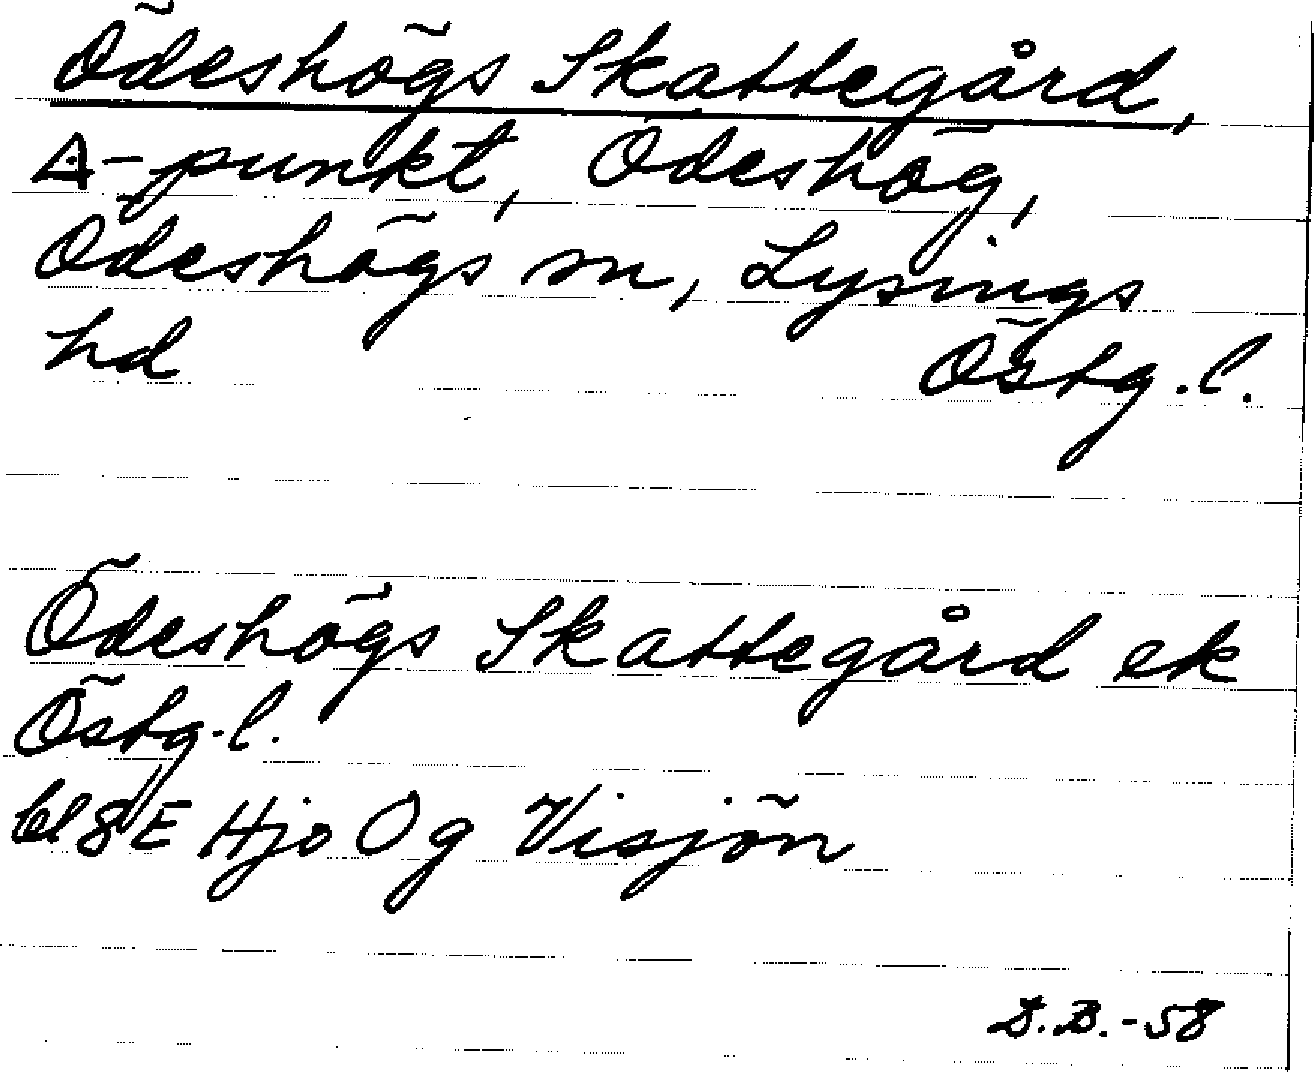 Ödeshögs Skattegård,
△-punkt, Ödeshög,
Ödeshögs sn, Lysings
hd Östg.l.
Ödeshögs Skattegård ek
Östg.l.
bl 8 E Hjo Og Visjön
D.B.-58